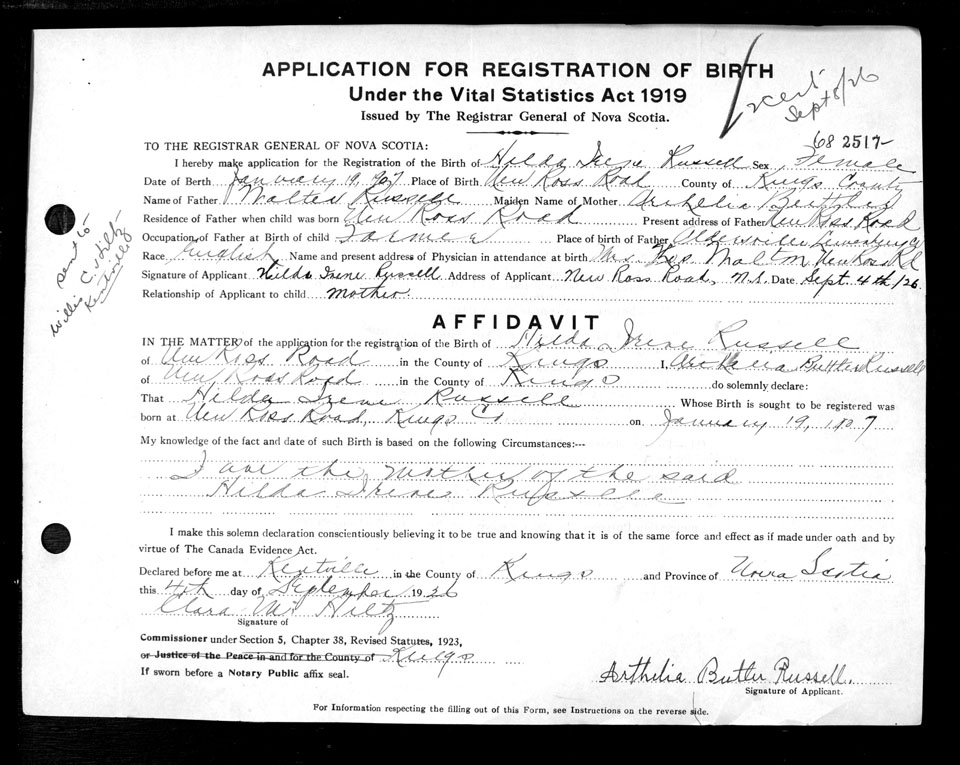 APPLICATION FOR REGISTRATION OF BIRTH
Under the Vital Statistics Act 1919
Issued by The Registrar General of Nova Scotia.
Sept 8/26
68 2517
TO THE REGISTRAR GENERAL OF NOVA SCOTIA:
I hereby make application for the Registration of the Birth of Hilda Irene Russell Sex Female
Date of Berth January 19, 1907 Place of Birth New Ross Road County of Kings County
Name of Father Walter Russell Maiden Name of Mother
Residence of Father when child was born New Ross Road Present address of Father New Ross Road
Occupation of Father at Birth of child Farmer Place of birth of Father
Race English Name and present address of Physician in attendance at birth Mrs. New Ross Rd
Signature of Applicant Hilda Irene Russell Address of Applicant New Ross Road, N.S. Date Sept. 4th/26
Relationship of Applicant to child Mother.
sent to
Willis C. Hiltz
Kentville
AFFIDAVIT
IN THE MATTER of the application for the registration of the Birth of Hilda Irene Russell
of New Ross Road in the County of Kings I, Butler Russell
of New Ross Road in the County of Kings do solemnly declare:
That Hilda Irene Russell Whose Birth is sought to be registered was
born at New Ross Road, Kings Co on January 19, 1907
My knowledge of the fact and date of such Birth is based on the following Circumstances:--
I am the Mother of the said
Hilda Irene Russell
I make this solemn declaration conscientiously believing it to be true and knowing that it is of the same force and effect as if made under oath and by
virtue of The Canada Evidence Act.
Declared before me at Kentville in the County of Kings and Province of Nova Scotia
this 4th day of September 1926
Clara M. Hiltz
Signature of
Commissioner under Section 5, Chapter 38, Revised Statutes, 1923,
or Justice of the Peace in and for the County of Kings
If sworn before a Notary Public affix seal.
Arthelia Butler Russell.
Signature of Applicant.
For Information respecting the filling out of this Form, see Instructions on the reverse side.